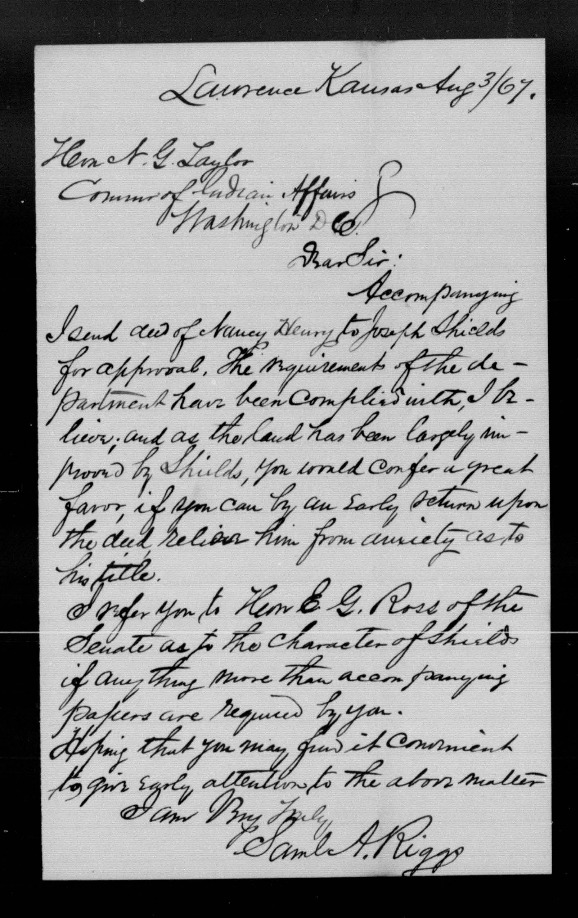 Lawrence Kansas Aug 3/67.
Hon N. G. Taylor
Commr of Indian Affairs
Washington D C.
Dear Sir:
Accompanying
I send deed of Nancy Henry to Joseph Shields
for approval. The requirements of the de-
partment have been complied with, I be-
lieve; and as the land has been largely im-
proved by Shields, you would confer a great
favor, if you can by an early return upon
the deed, relieve him from anxiety as to
his title.
I refer you to Hon E G. Ross of the
Senate as to the character of Shields
if anything more than accompanying
papers are required by you.
Hoping that you may find it convenient
to give early attention to the above matter
I am Very Truly
Saml A. Riggs